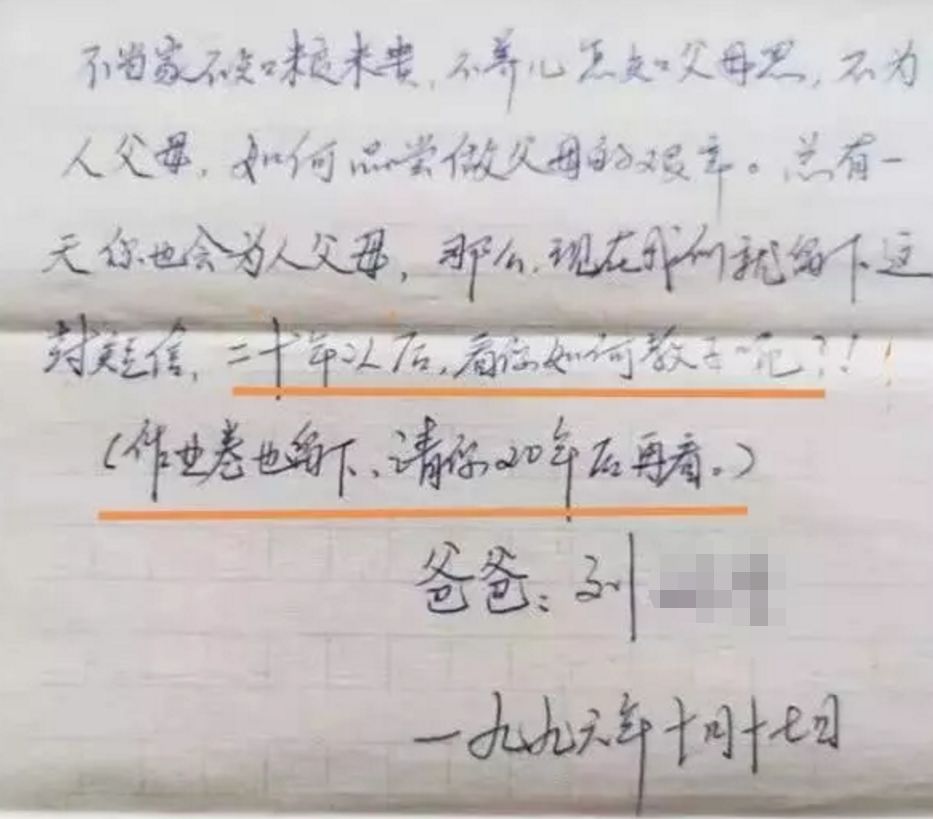 不当家不知粮米贵，不养儿怎知父母恩，不为
人父母，如何品尝做父母的艰辛。总有一
天你也会为人父母，那么，现在我们就留下这
封短信，二十年以后，看你如何教子呢？！！
（作业卷也留下、请你20年后再看。）
爸爸：刘
一九九六年十月十七日